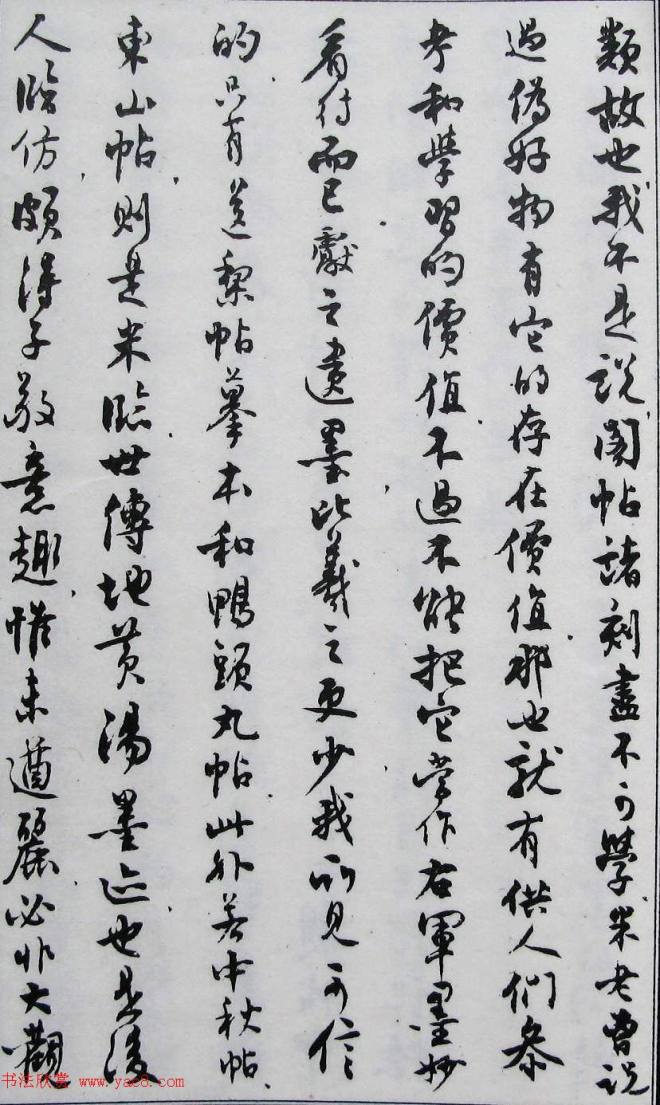 類故也我不是說閣帖諸刻盡不可學米老曾說
過偽好物有它的存在價值那也就有供人們參
考和學習的價值不過不能把它當作右軍墨妙
看待而已獻之遺墨比羲之更少我所見可信
的只有送梨帖摹本和鴨頭丸帖此外若中秋帖、
東山帖則是米臨世傳地黃湯墨迹也是後
人臨仿頗得子敬意趣惟未遒麗必非大觀
书法欣赏 www.yac8.com